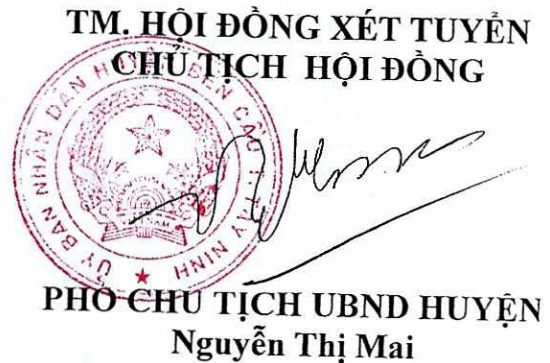 TM. HỘI ĐỒNG XÉT TUYỂN
CHỦ TỊCH HỘI ĐỒNG
ỦY BAN NHÂN DÂN HUYỆN BẾN CẦU T. TÂY NINH
PHÓ CHỦ TỊCH UBND HUYỆN
Nguyễn Thị Mai